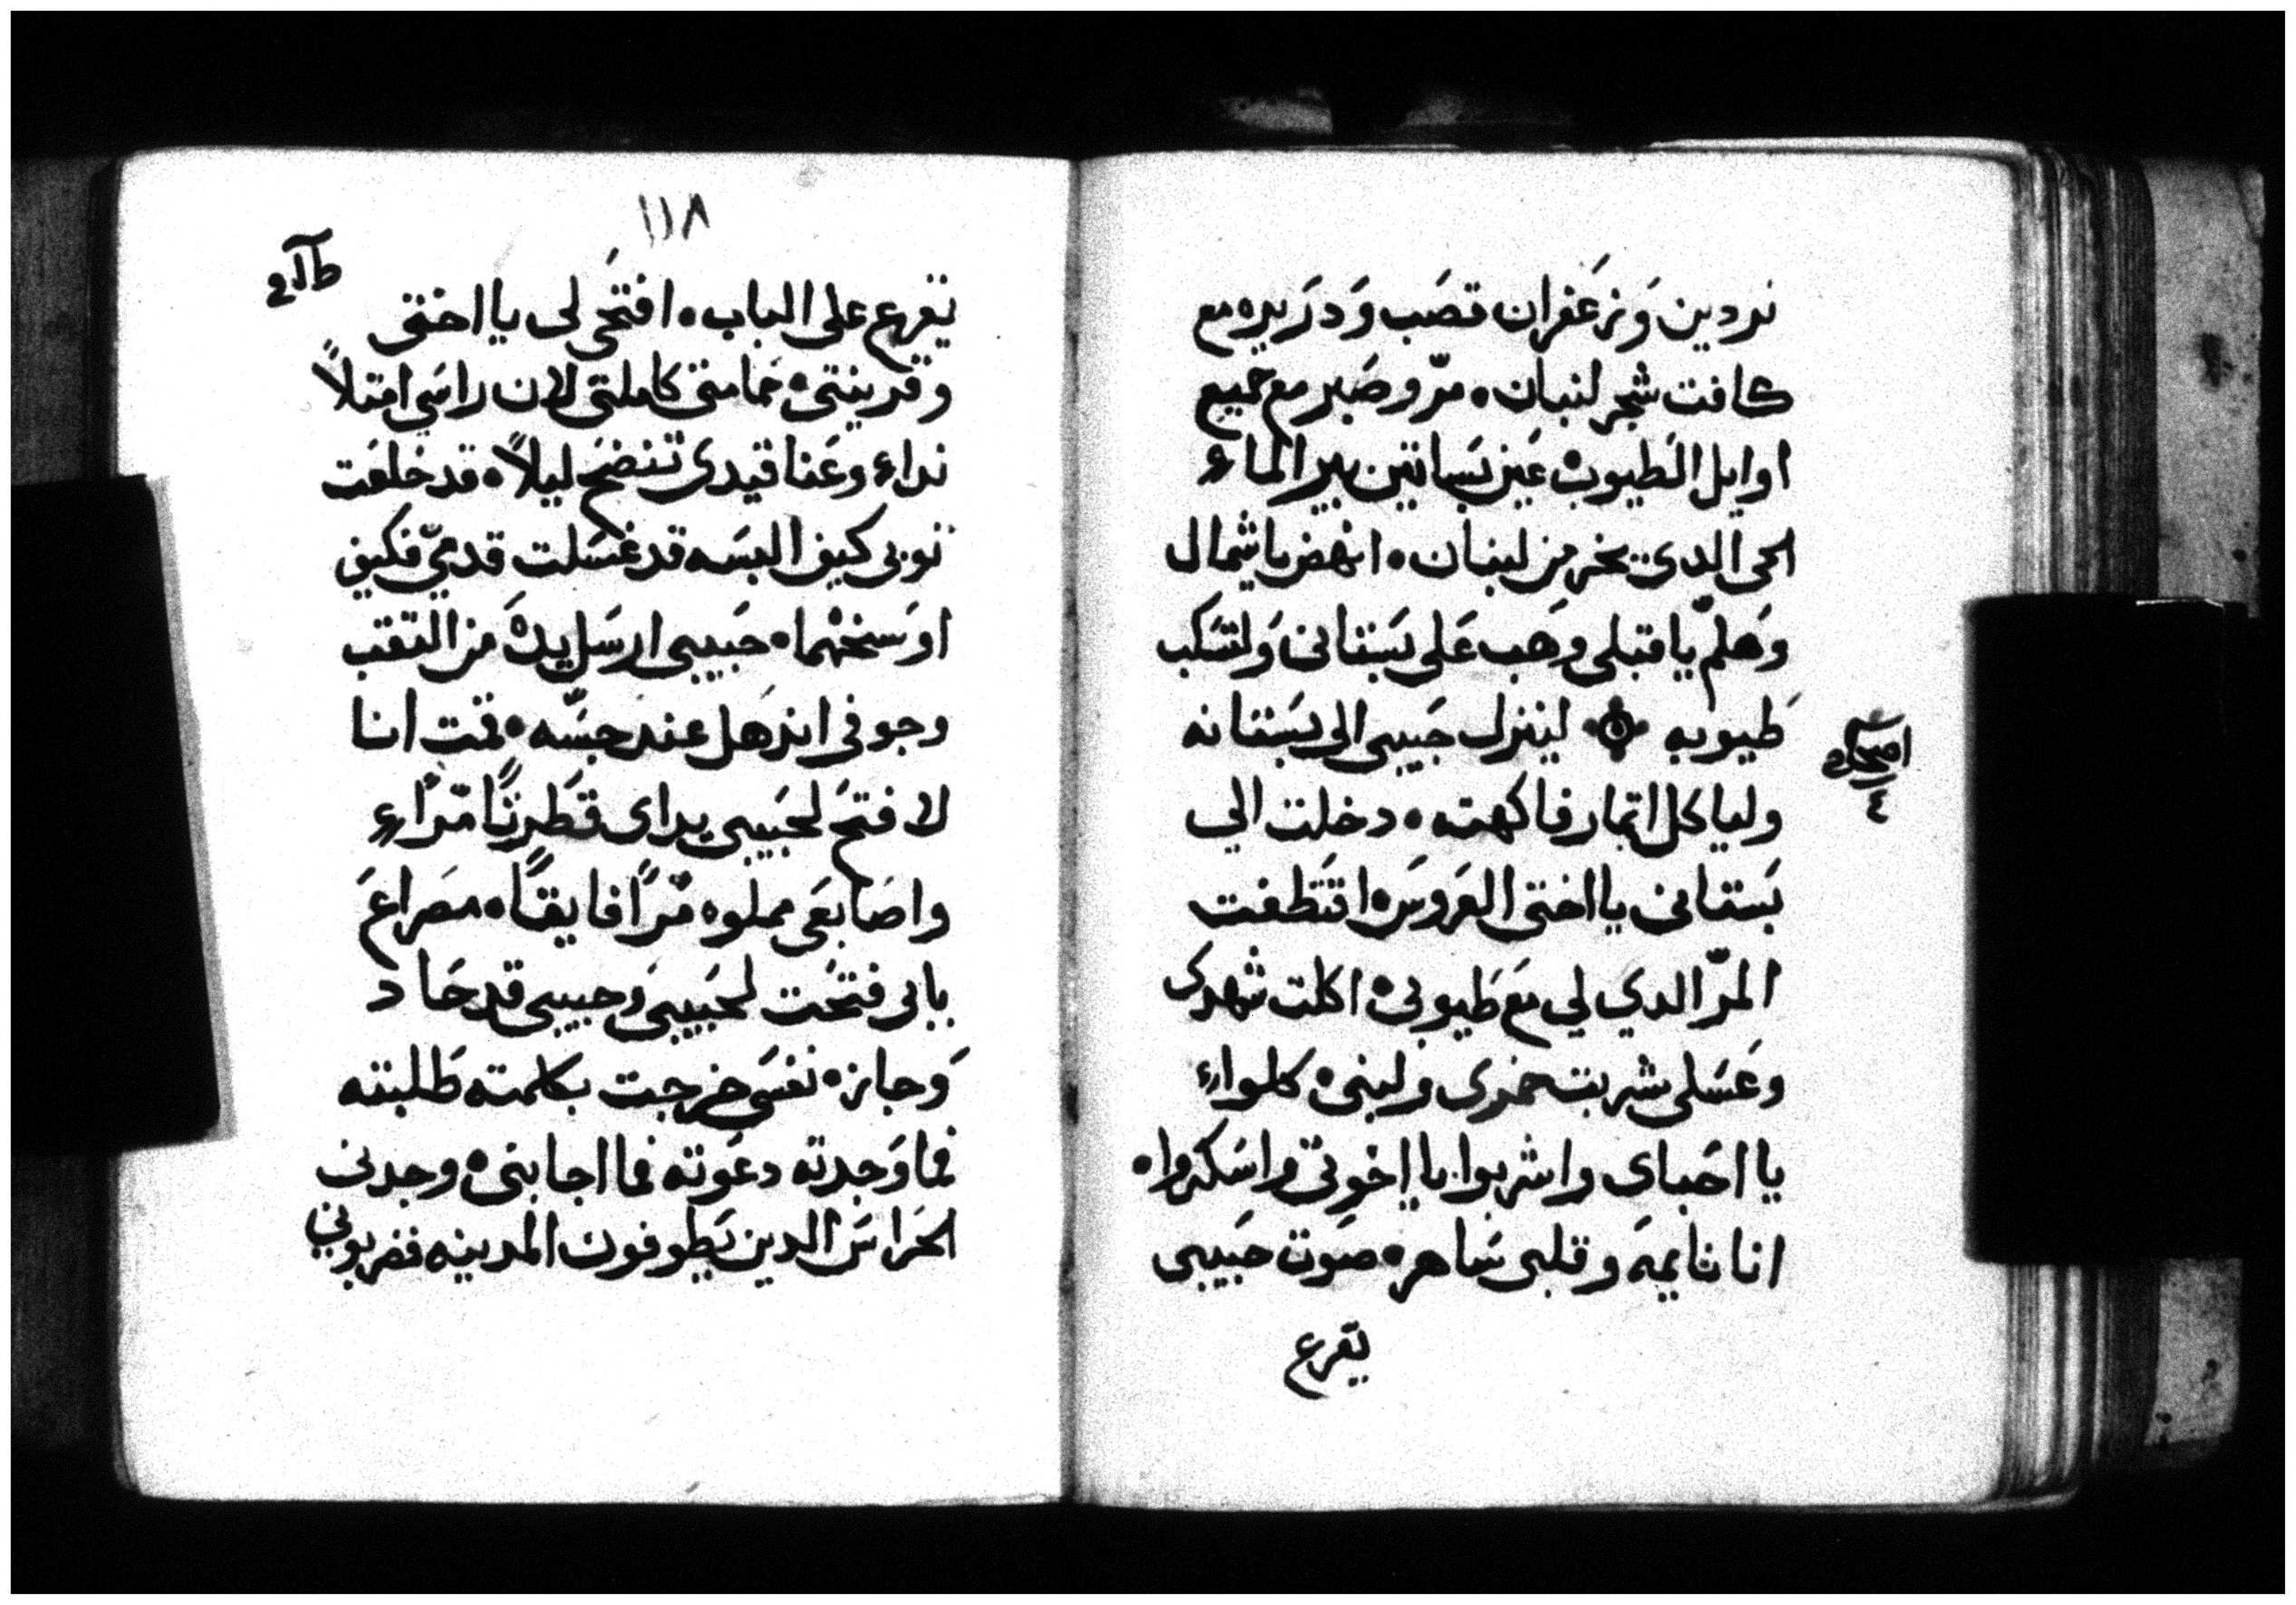 نردين وَزعَفران قصَب وَدرَيره مع
كافت شجر لنبان ° مرّ وصَبر مع جميع
اوايل الطيوب ° عَين بسَاتين بير الماء
الحي الدي يخر من لبنان ° انهض يا شمال
وَهلمّ يا قبلي وهَب عَلى بسَتاني وَلتسَكب
طيوبه ۞ لينزل حَبيبي الى بسَتانه
وليا كل اتمار فاكهته ° دخلت الي
بسَتاني يا اختى العَروسَ ° اقتَطفت
المرّ الدي لي معَ طَيوبى ° اكلت شهدى
وعَسَلى شربت خمرى ولبنى ° كلواء
يا احَباى واشربوا يا اخوتي واسَكروا °
انا نايمهَ وقلبى سَاهر ° صوَت حَبيبى
يقرع
اصحاح
٤
١١٨
يقرع على الباب ° افتحَى لى يا اختى
وقرينتى ° حَمامتى كاملتى لان راسَي امتلاً
نداء وعَناقيدى تنضحَ ليلاً ° قد خلعَت
توبى كيف البسَه قد غسَلت قدميّ فكيف
اوسَخهما ° حبَيبى ارسَل يدهَ من التقب
وجوفى اندهَل عند جسَّه ° قمت انا
لافتحَ لحبيبى يداى قطَرتاً مرّاء
واصَابعَى مملوه مرّاً فايقاً ° مصَراعَ
بابى فتحَت لحبَيبىَ وحبيبى قد حَاد
وَجاز ° نفسَى خرجت بكلمته طَلبته
فما وَجدته دعَوته فما اجابنى ° وجدنى
الحَراسَ الدين يَطوفون المدينه فضربوني